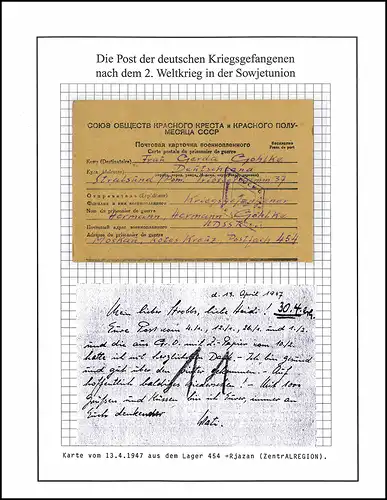 Die Post der deutschen Kriegsgefangenen
nach dem 2. Weltkrieg in der Sowjetunion
СОЮЗ ОБЩЕСТВ КРАСНОГО КРЕСТА и КРАСНОГО ПОЛУ-
МЕСЯЦА СССР
Почтовая карточка военнопленного
Carte postale du prisonnier de guerre
Бесплатно
Franc de port
Кому (Destinataire) Frau Gerda Gohlke
Куда (Adresse) Deutschland
Stralsund Pom. 37
Отправитель (Expéditeur) Kriegsgefangener
Фамилия и имя военнопленного
Nom du prisonnier de guerre
Hermann Hermann Gohlke
Почтовый адрес военнопленного UdSSR
Adresse du prisonnier de guerre
Moskau, Rotes Kreuz Postfach 454
d. 13. April 1947
Mein lieber liebe Heidi! 30.4.
Eure Post vom 4./1., 12./1., 26./1. und 1./2.
und die aus mit -Papier vom 10./2.
hatte ich mit herzlichem Dank. Ich bin gesund
und gut über den Winter gekommen. Auf
hoffentlich baldiges Wiedersehen! Mit 1000
Grüßen und Küssen bin ich Euer, immer an
Euch denkender
Vati.
Karte vom 13.4.1947 aus dem Lager 454 =Rjazan (ZentrALREGION).